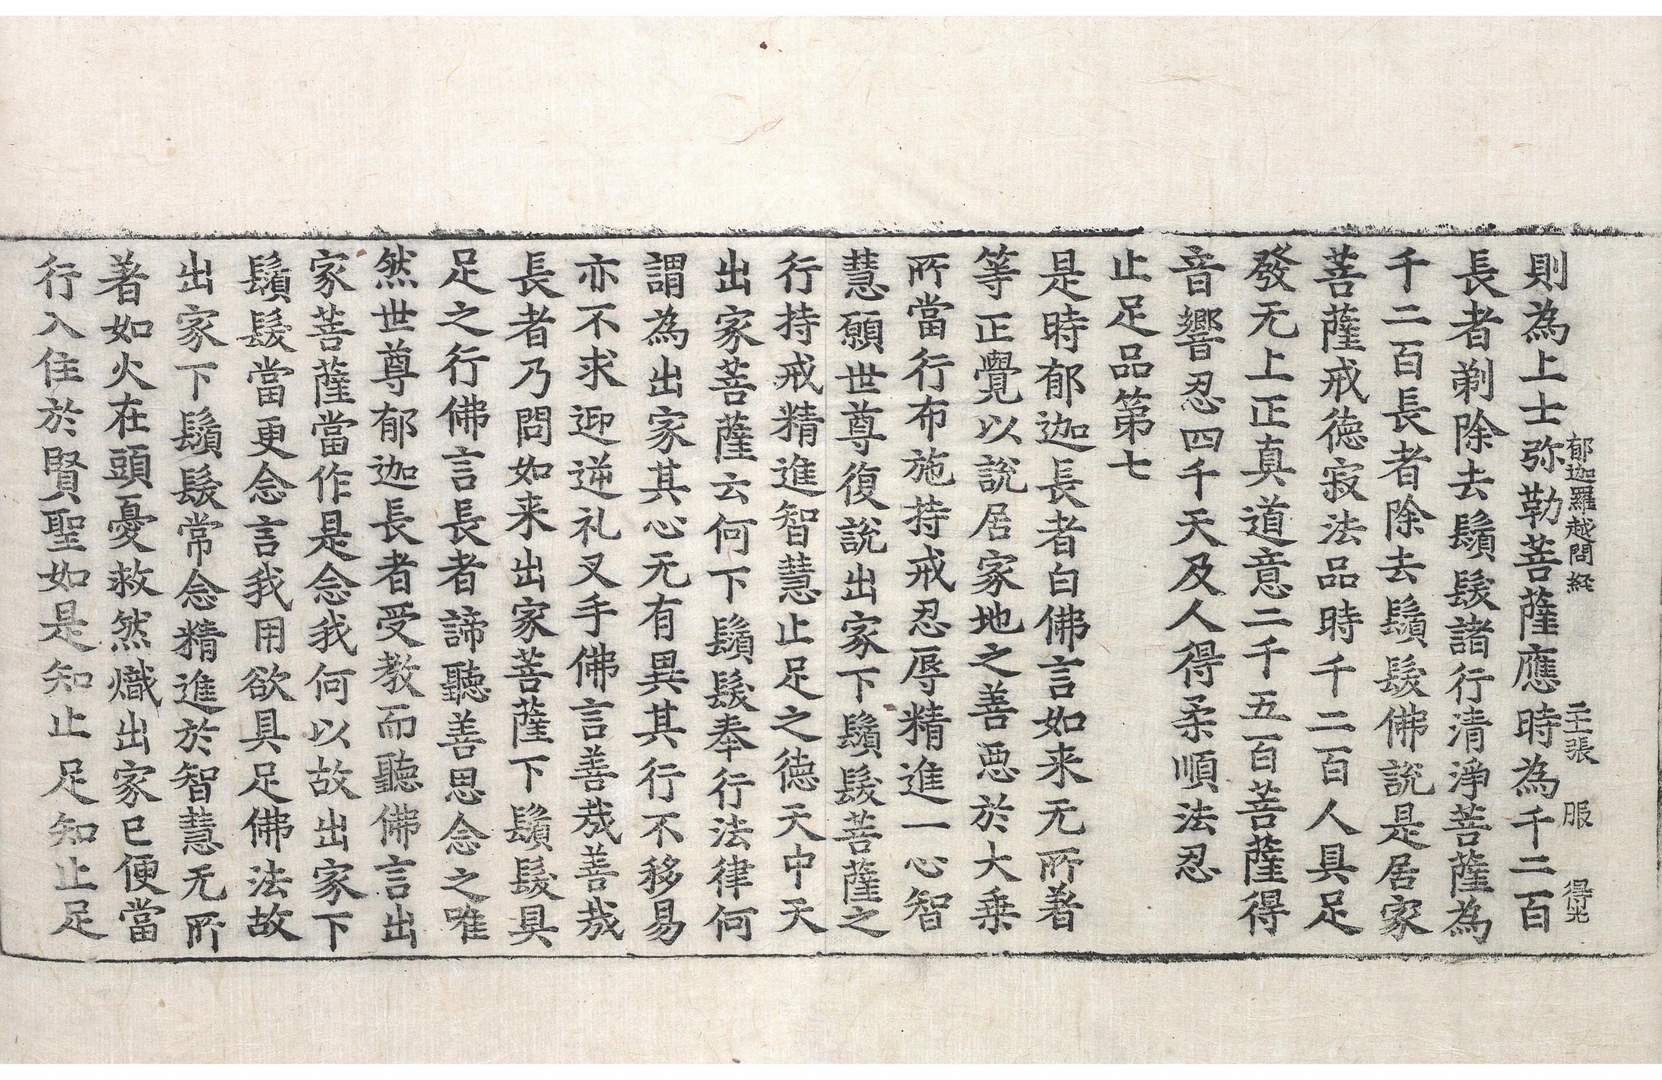 郁迦羅越問経 二十張 服
則為上士弥勒菩薩應時為千二百
長者剃除去鬚髮諸行清淨菩薩為
千二百長者除去鬚髮佛說是居家
菩薩戒德寂法品時千二百人具足
發无上正真道意二千五百菩薩得
音響忍四千天及人得柔順法忍
止足品第七
是時郁迦長者白佛言如来无所著
等正覺以說居家地之善惡於大乗
所當行布施持戒忍辱精進一心智
慧願世尊復說出家下鬚髮菩薩之
行持戒精進智慧止足之德天中天
出家菩薩云何下鬚髮奉行法律何
謂為出家其心无有異其行不移易
亦不求迎逆礼叉手佛言善哉善哉
長者乃問如来出家菩薩下鬚髮具
足之行佛言長者諦聽善思念之唯
然世尊郁迦長者受教而聽佛言出
家菩薩當作是念我何以故出家下
鬚髮當更念言我用欲具足佛法故
出家下鬚髮常念精進於智慧无所
著如火在頭憂救然熾出家已便當
行入住於賢聖如是知止足知止足